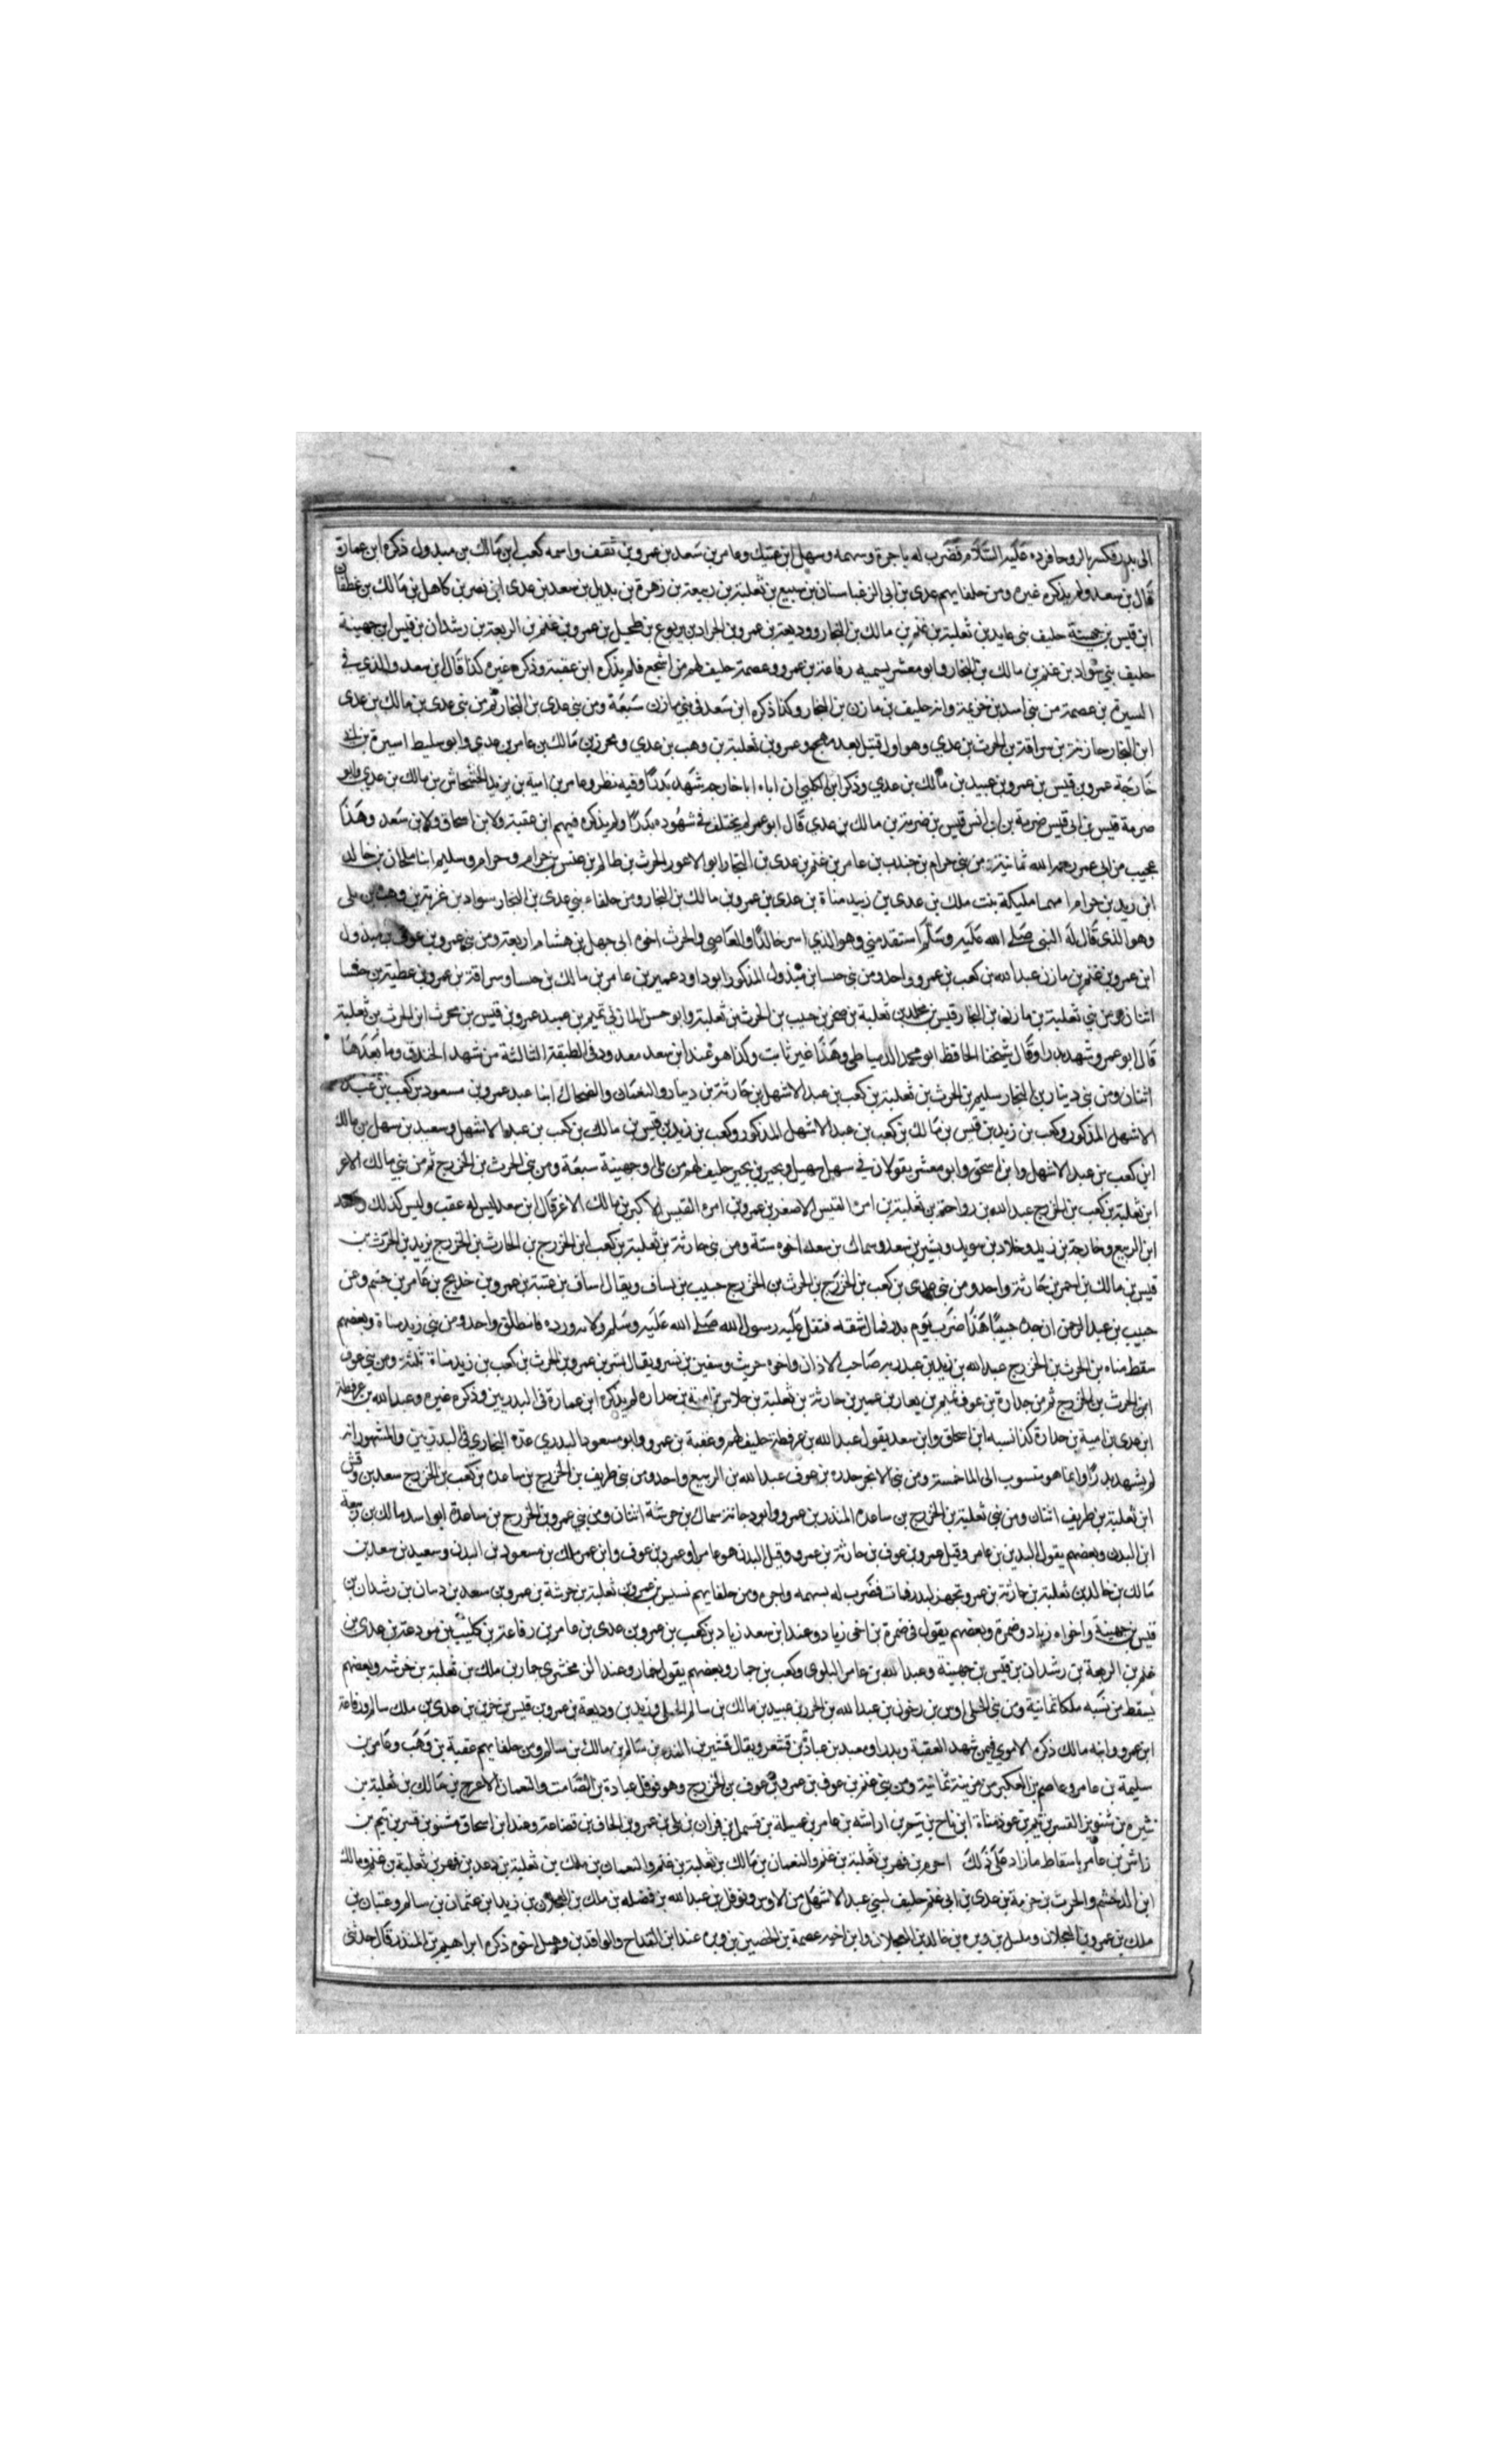 الى بدر فكسر بالروحا فرده عليه السلام فضرب له باجره وسهمه وسهل ابن عتيك وعامر بن سعد بن عمرو بن ثقف واسمه كعب ابن مالك بن مبدول ذكره ابن عمارة
قال بن سعد ولم يذكره غيره ومن حلفايهم عدى بن ابى الزغبا سنان بن سبيع بن ثعلبة بن ربيعة بن زهرة بن بديل بن سعد بن عدى ابن نصر بن كاهل بن مالك بن غطفان
ابن قيس بن جهينة حليف بنى عايد بن ثعلبة بن غنم بن مالك بن النجار ووديعة بن عمرو بن الجراد بن يربوع بن طحيل بن عمرو بن غنم بن الربعة بن رشدان بن قيس ابن جهينة
حليف بني سواد بن غنم بن مالك بن النجار وابو معشر يسميه رفاعة بن عمرو وعصمة حليف لهم من اشجع فلم يذكره ابن عقبة وذكره غيره كذا قال ابن سعد والذي في
السيرة بن عصمة من بنى اسد بن خزيمة وانه حليف بن مازن بن النجار وكذا ذكره ابن سعد فى بني مازن سبعة ومن بنى عدى بن النجار ثم من بنى عدى بن مالك بن عدى
ابن النجار حارثة بن سراقة بن الحرث بن عدي وهو اول قتيل بعد مهجع وعمرو بن ثعلبة بن وهب بن عدي ومحرز بن مالك بن عامر بن عدي وابو سليط اسيرة بن
خارجة عمرو بن قيس بن عمرو بن عبيد بن مالك بن عدي وذكر ابن الكلبي ان اباه اباخارجه شهد بدرًا وفيه نظر وعامر بن امية بن زيد الحشحاش بن مالك بن عدي وابو
صرمة قيس بن ابى قيس صرمة بن ابى انس قيس بن صرمة بن مالك بن عدي قال ابو عمر لم يختلف في شهوده بدرًا ولم يذكره فيهم ابن عقبة ولا ابن اسحاق ولا بن سعد وهذا
عجيب من ابى عمر رحمه الله ثمانية من بني حرام بن جندب بن عامر بن غنم بن عدى بن النجار ابو الاعور الحرث بن ظالم بن عبس بن حرام وحرام وسليم ابنا ملحان بن خالد
ابن زيد بن حرام امهما مليكة بنت ملك بن عدى بن زيد مناة بن عدى بن عمرو بن مالك بن النجار ومن حلفاء بني عدى بن النجار سواد بن غزية بن وهب بن بلى
وهو الذى قال له النبى صلى الله عليه وسلم استقدمني وهو الذي اسر خالدًا والعاصي والحرث اخوه ابى جهل بن هشام اربعة ومن بنى عمرو بن عوف بن مبدول
ابن عمرو بن غنم بن مازن عبد الله بن كعب بن عمرو واحد ومن بنى خنسا بن مبدول المذكور ابو داود عمير بن عامر بن مالك بن خنسا وسراقة بن عمرو بن عطية بن خنسا
اثنان ومن بني ثعلبة بن مازن بن النجار قيس بن مخلد بن ثعلبة بن صخر بن حبيب بن الحرث بن ثعلبة وابو حسن المازني تميم بن عبيد عمرو بن قيس بن محرث ابن الحرث بن ثعلبة
قال ابو عمرو شهد بدرا وقال شيخنا الحافظ ابو محمد الدمياطى وهذا غير ثابت وكذا هو عند ابن سعد معدود فى الطبقة الثالثة من شهد الخندق وما بعدها
اثنان ومن بنى دينار بن النجار سليم بن الحرث بن ثعلبة بن كعب بن عبد الاشهل بن حارثة بن دينار والنعمان والضحاك ابنا عبد عمرو بن مسعود بن كعب بن عبد
الاشهل المذكور وكعب بن زيد بن قيس بن مالك بن كعب بن عبد الاشهل المذكور وكعب بن زيد بن قيس بن مالك بن كعب بن عبد الاشهل وسعيد بن سهل بن مالك
ابن كعب بن عبد الاشهل وابن اسحق وابو معشر يقولان في سهل سهيل وبجير بن بجير حليف لهم من بلى وجهينة سبعة ومن بنى الحرث بن الخزرج ثم من بني مالك الاغر
ابن ثعلبة بن كعب بن الخزرج عبد الله بن رواحة بن ثعلبة بن امره القيس الاصغر بن عمرو بن امره القيس الاكبر بن مالك الاغر قال ابن سعد ليس له عقب وليس كذلك وسعد
ابن الربيع وخارجة بن زيد وخلاد بن سويد وبشير بن سعد وسماك بن سعد اخوه ستة ومن بنى حارثة بن ثعلبة بن كعب ابن الخزرج بن الحارث بن الخزرج يزيد بن الحرث بن
قيس بن مالك بن احمر بن حارثة واحد ومن بني عدى بن كعب بن الخزرج بن الحرث بن الخزرج حبيب بن يساف ويقال اساف بن عتبة بن عمرو بن خديج بن عامر بن جشم وعن
حبيب بن عبد الرحمن ان جده حبيبًا هذا ضرب يوم بدر فمال شقه فتفل عليه رسول الله صلى الله عليه وسلم ولامه ورده فانطلق واحد ومن بني زيد مناة وبعضهم
سقط مناه بن الحرث بن الخزرج عبد الله بن زيد بن عبد ربه صاحب الاذان واخوه حريث وسفين بن نسر ويقال بشر بن عمرو بن الحرث بن كعب بن زيد مناة ثلثة ومن بني عوف
ابن الحرث بن الخزرج ثم من جدارة بن عوف تميم بن يعار بن عمير بن حارثة بن ثعلبة بن خلاس بن امية بن حداره لم يذكره ابن عمارة فى البدريين وذكره غيره وعبد الله بن عرفطة
ابن عدى بن امية بن حدارة كذا نسبه ابن اسحاق وابن سعد يقول عبد الله بن عرفطة حليف لهم وعقبة بن عمرو وابو مسعود البدري عده البخاري فى البدريين والمشهور انه
لم يشهد بدرًا وانما هو منسوب الى الما خمسة ومن بني الابجر حدره بن عوف عبد الله بن الربيع واحد ومن بني طريف بن الخزرج بن ساعده بن كعب بن الخزرج سعد بن وقش
ابن ثعلبة بن طريف اثنان ومن بني ثعلبة بن الخزرج بن ساعده المنذر بن عمرو وابو دجانة سماك بن خرشة اثنان ومن بني عمرو بن الخزرج بن ساعدة ابو اسد مالك بن ربيعة
ابن البدن وبعضهم يقول البدين بن عامر وقيل عمرو بن عوف بن حارثة بن عمرو وقيل البدن هو عامر او عمرو بن عوف وابن عمر ملك بن مسعود بن البدن وسعيد بن سعد بن
مالك بن خالد بن ثعلبة بن حارثة بن عمرو تجهز لبدر فمات فضرب له بسهمه واجره ومن حلفايهم نسيس بن عمرو بن ثعلبة بن خرشة بن عمرو بن سعد بن دبيان بن رشدان بن
قيس بن جهينة واخواه زياد وضمرة وبعضهم يقول فى ضمرة بن اخى زياد وعند ابن سعد زياد بن كعب بن عمرو بن عدى بن عامر بن رفاعة بن كليب بن مودعة بن عدى بن
غنم بن الربعة بن رشدان بن قيس بن جهينة وعبد الله بن عامر البلوى وكعب بن جمار وبعضهم يقول خمار وعند الزمخشري حار بن ملك بن ثعلبة بن خرشه وبعضهم
يسقط من نسبه ملكا ثمانية ومن بنى الحبلى اوس بن خولى بن عبد الله بن الحرث بن عبيد بن مالك بن سالم الحبلى وزيد بن وديعة بن عمرو بن قيس بن جزى بن عدى بن ملك سالم ورفاعة
ابن عمرو وابنه مالك ذكره الاموي فيمن شهد العقبة وبدرا ومعبد بن عباد بن قشعر ويقال قشير بن الفدم بن سالم بن مالك بن سالم ومن حلفايهم عقبة بن وهب وعامر بن
سليمة بن عامر وعاصم بن العكير من مزينة ثمانية ومن بني غنم بن عوف بن عمرو بن عوف بن الخزرج وهو قوقل عبادة بن الصامت والنعمان الاعرج بن مالك بن ثعلبة بن
زاش بن عامر باسقاط ما زاد على ذلك اصرم بن فهر بن ثعلبة بن غنم والنعمان بن مالك بن ثعلبة بن غنم والنعمان بن ملك بن ثعلبة بن دعد بن فهر بن ثعلبة بن غنم ومالك
ابن الدخشم والحرث بن خزمة بن عدى بن ابى غنم حليف لبني عبد الاشهل من الاوس ونوفل بن عبد الله بن فضله بن ملك بن العجلان بن زيد ابن عثمان بن سالم وعتبان بن
ملك بن عمرو بن العجلان ومليل بن وبره بن خالد بن العجلان وابن اخيه عصمة بن الحصين بن وبره عند ابن القداح والواقد بن وهبيل اخوه ذكره ابراهيم بن المنذر قال حدثني